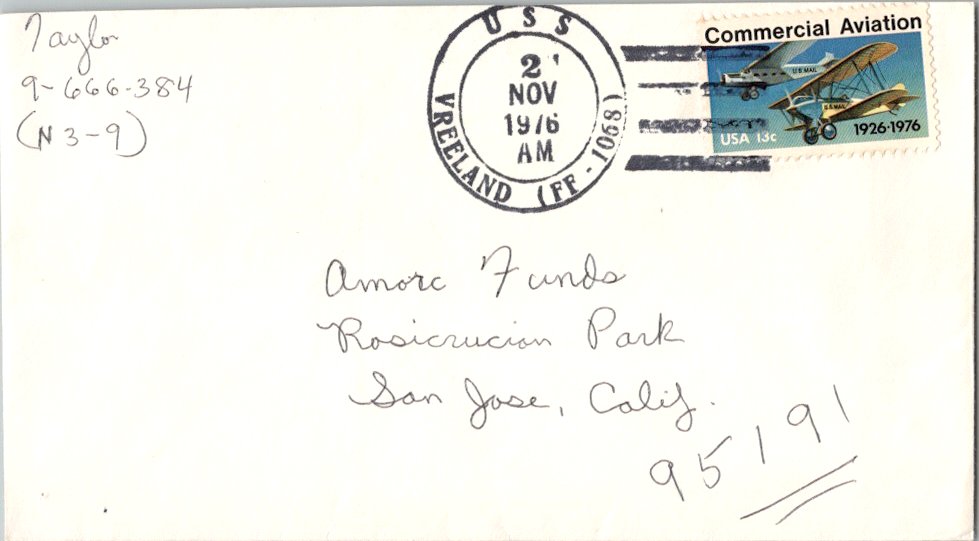 Taylor
9-666-384
(N3-9)
USS
2
NOV
1976
AM
VREELAND (FF-1068)
Commercial Aviation
U.S. MAIL
U.S. MAIL
USA 13c
1926-1976
Amorc Funds
Rosicrucian Park
San Jose, Calif.
95191